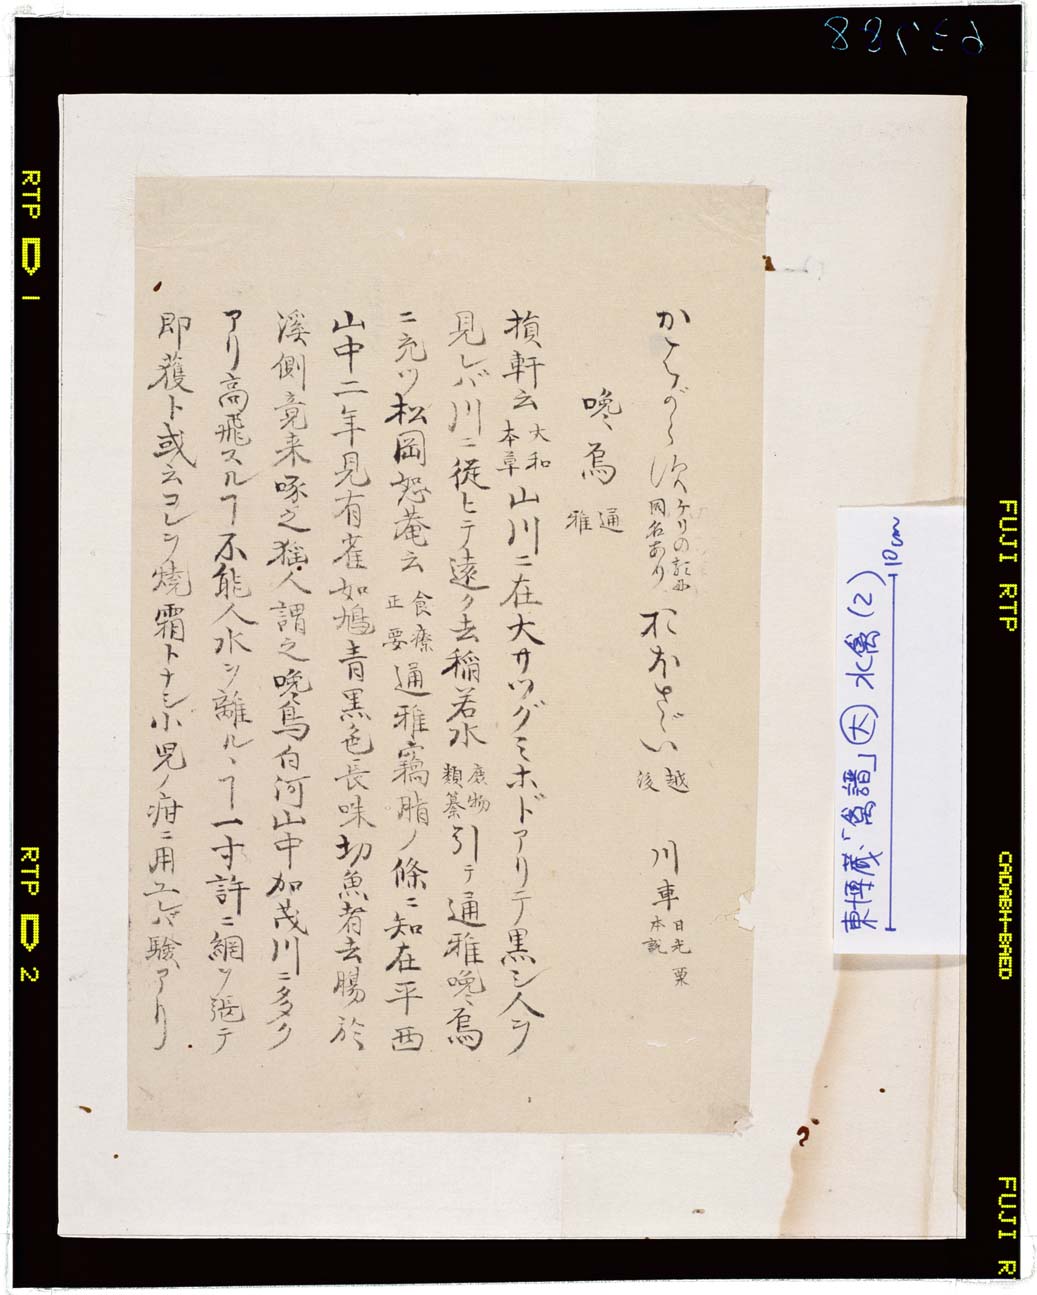 かはがらす ケリの類ニ同名あり おほさゞい 越後 川車 日光 栗本説
㘔鳥 通雅
損軒云 大和本草 山川ニ在大サツグミホドアリテ黒シ人ヲ
見レバ川ニ従ヒテ遠ク去稲若水 庶物類纂 引テ通雅㘔鳥
ニ充ツ松岡恕菴云 食療正要 通雅竊脂ノ條ニ知在平西
山中二年見有雀如鳩青黒色長味切魚者去腸於
溪側竟来啄之猺人謂之㘔鳥白河山中加茂川ニ多ク
アリ高飛スルヿ不能人水ヲ離ルヽヿ一寸許ニ網ヲ張テ
即獲ト或云コレヲ焼霜トナシ小児ノ疳ニ用ユレバ驗アリ
東博蔵「禽譜」(大) 水禽(2)
10cm
RTP 1
RTP 2
FUJI RTP
FUJI R